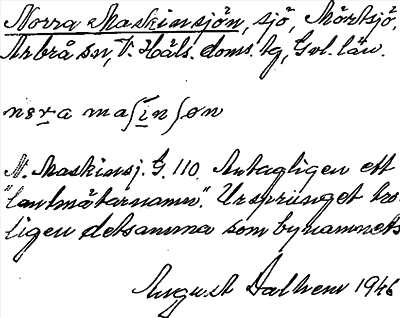 Norra Maskinsjön, sjö, Mörtsjö,
Arbrå sn, V. Häls. doms. tg, Gvl. län.
nɔr̲a ma ʃi̲nʃøn
N. Maskinsj. G. 110. Antagligen ett
"lantmätarnamn". Ursprunget tro-
ligen detsamma som bynamnets
August Dalhem 1946